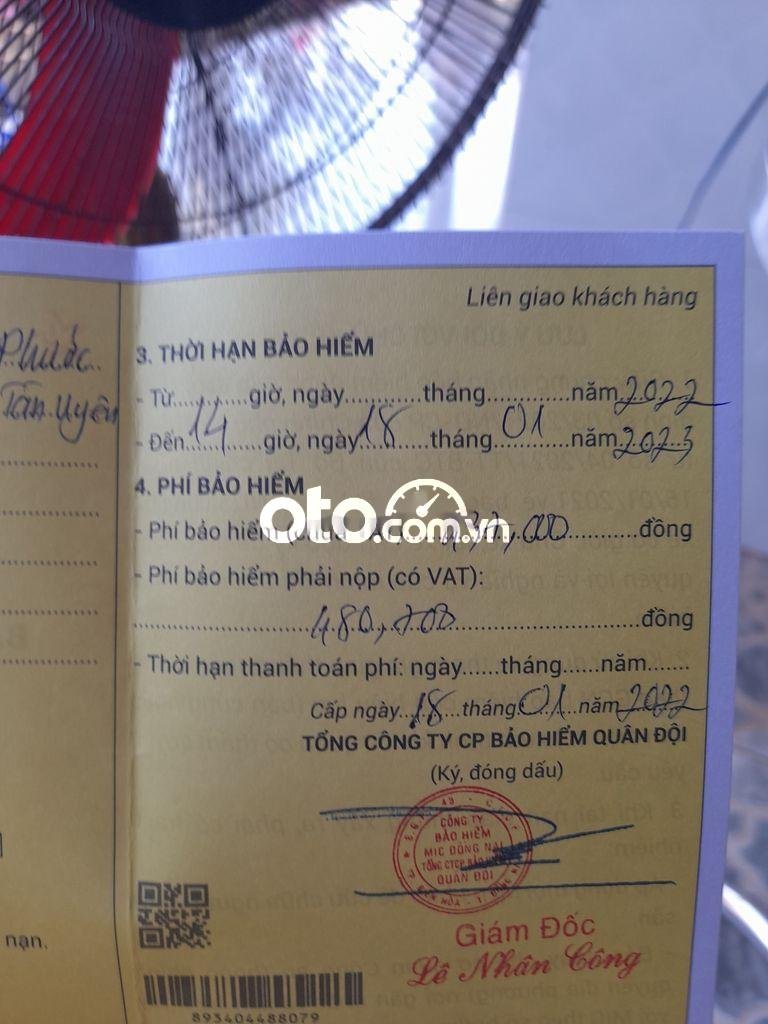 Liên giao khách hàng
Phước
Tân Uyên
3. THỜI HẠN BẢO HIỂM
- Từ..........giờ, ngày............tháng.............năm 2022
- Đến 14 giờ, ngày 18 tháng 01 năm 2023
4. PHÍ BẢO HIỂM
oto.com.vn
- Phí bảo hiểm ,000 đồng
- Phí bảo hiểm phải nộp (có VAT):
480,700 đồng
- Thời hạn thanh toán phí: ngày......tháng......năm.......
Cấp ngày 18 tháng 01 năm 2022
TỔNG CÔNG TY CP BẢO HIỂM QUÂN ĐỘI
(Ký, đóng dấu)
CÔNG TY
BẢO HIỂM
MIC ĐỒNG NAI
TỔNG CTCP BẢO HIỂM
QUÂN ĐỘI
Giám Đốc
Lê Nhân Công
nạn.
893404488079